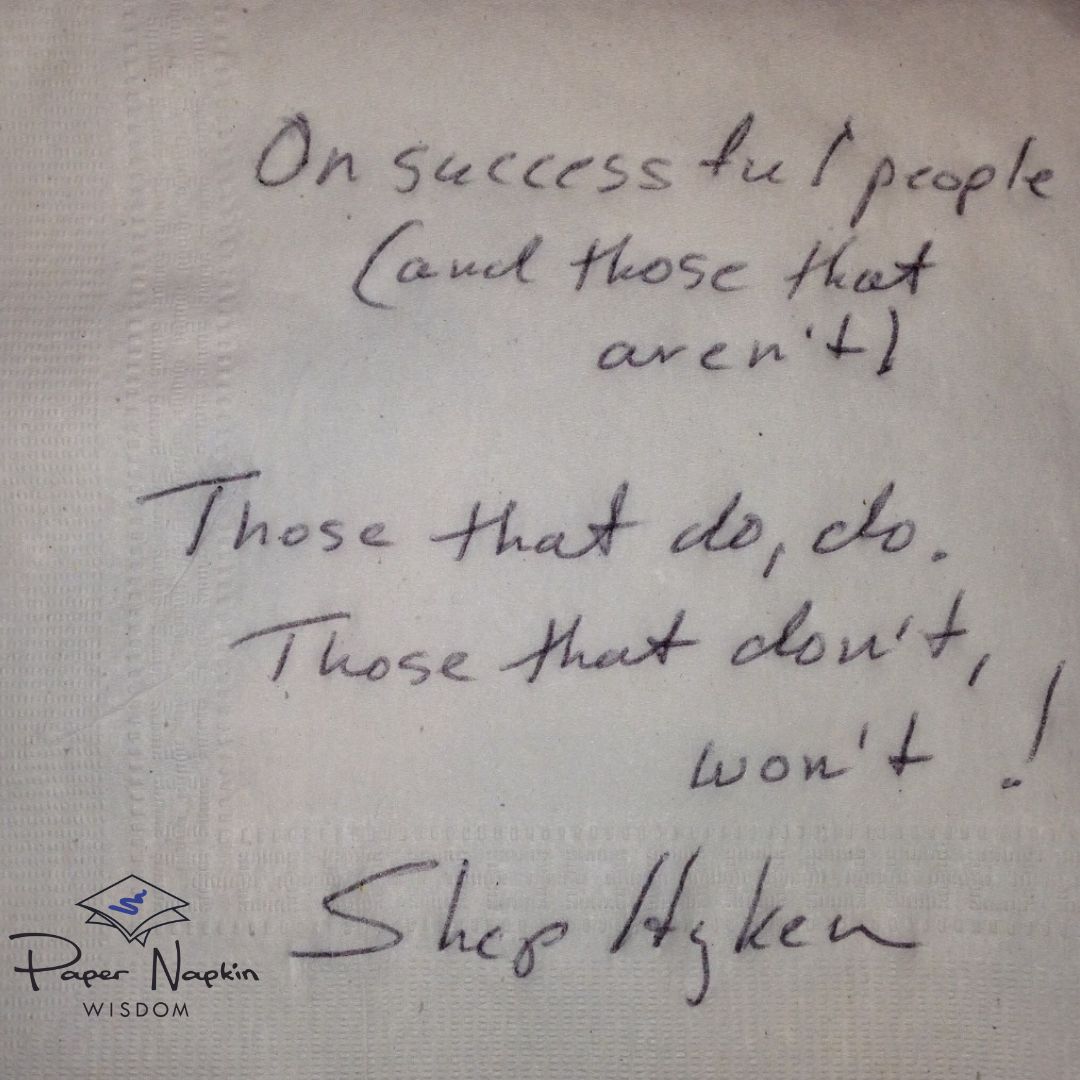 On successful people
(and those that
aren't)
Those that do, do.
Those that don't,
won't!
Shep Hyken
Paper Napkin
WISDOM